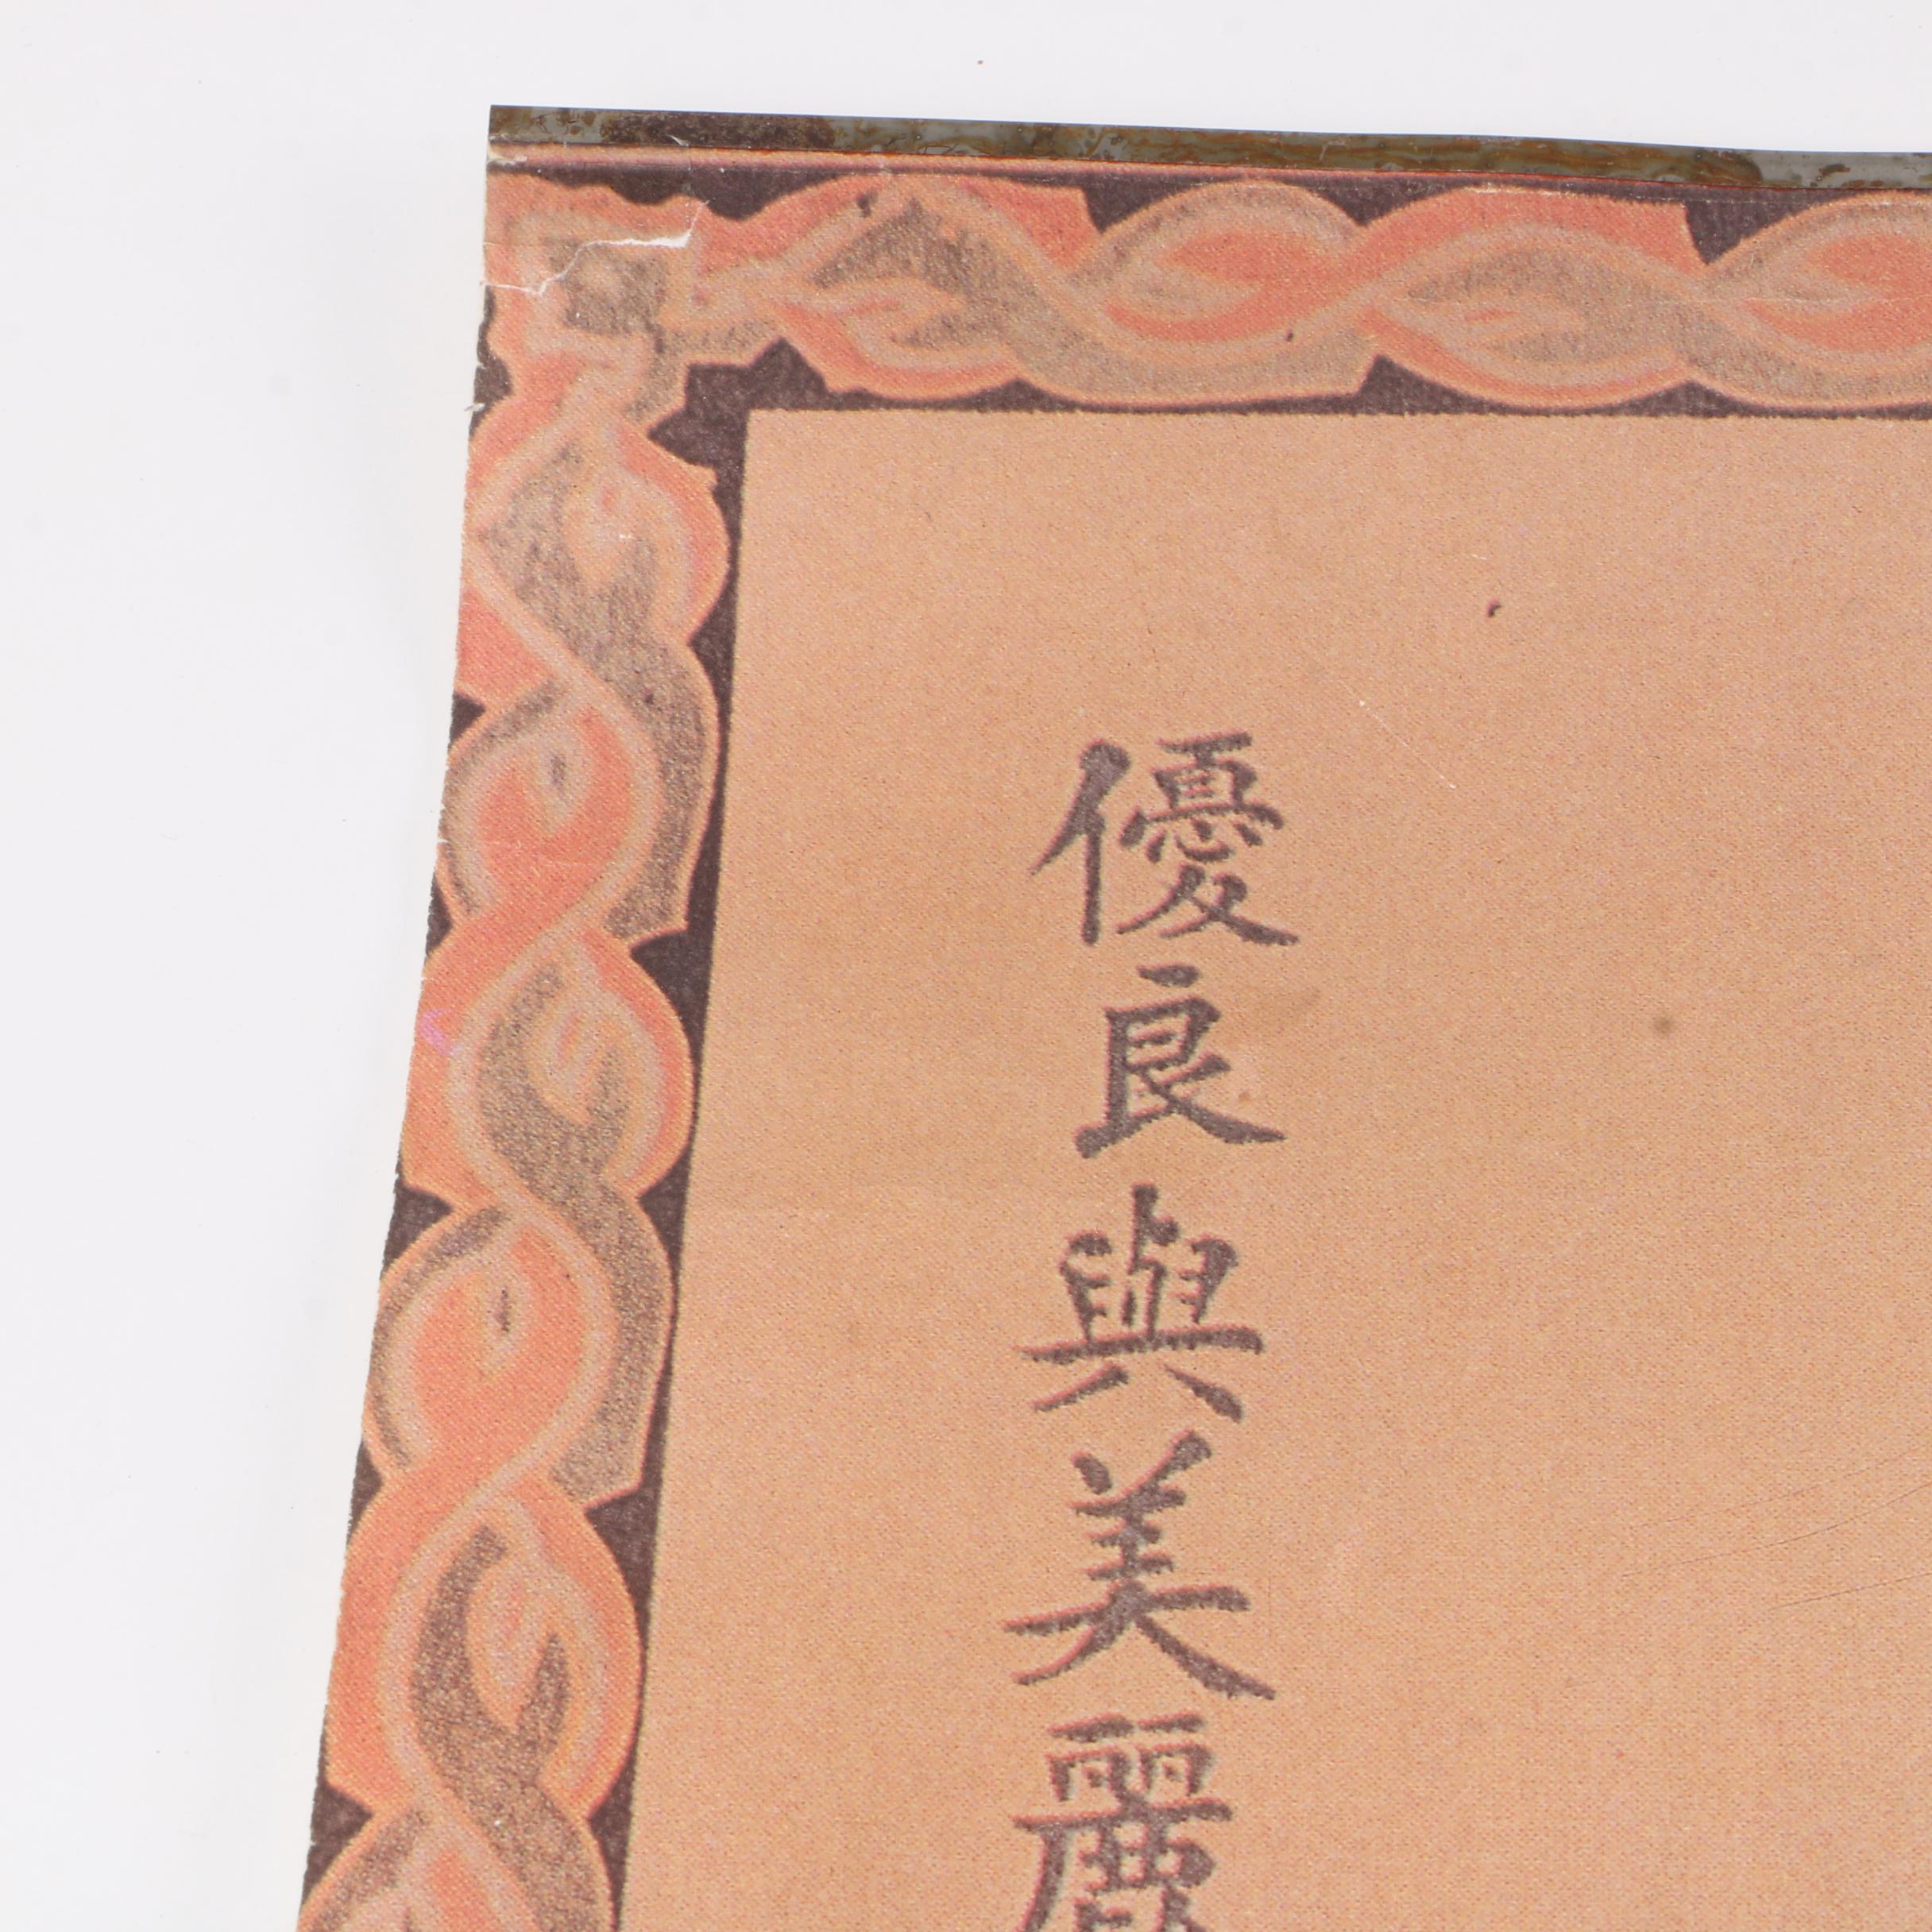 優良與美麗